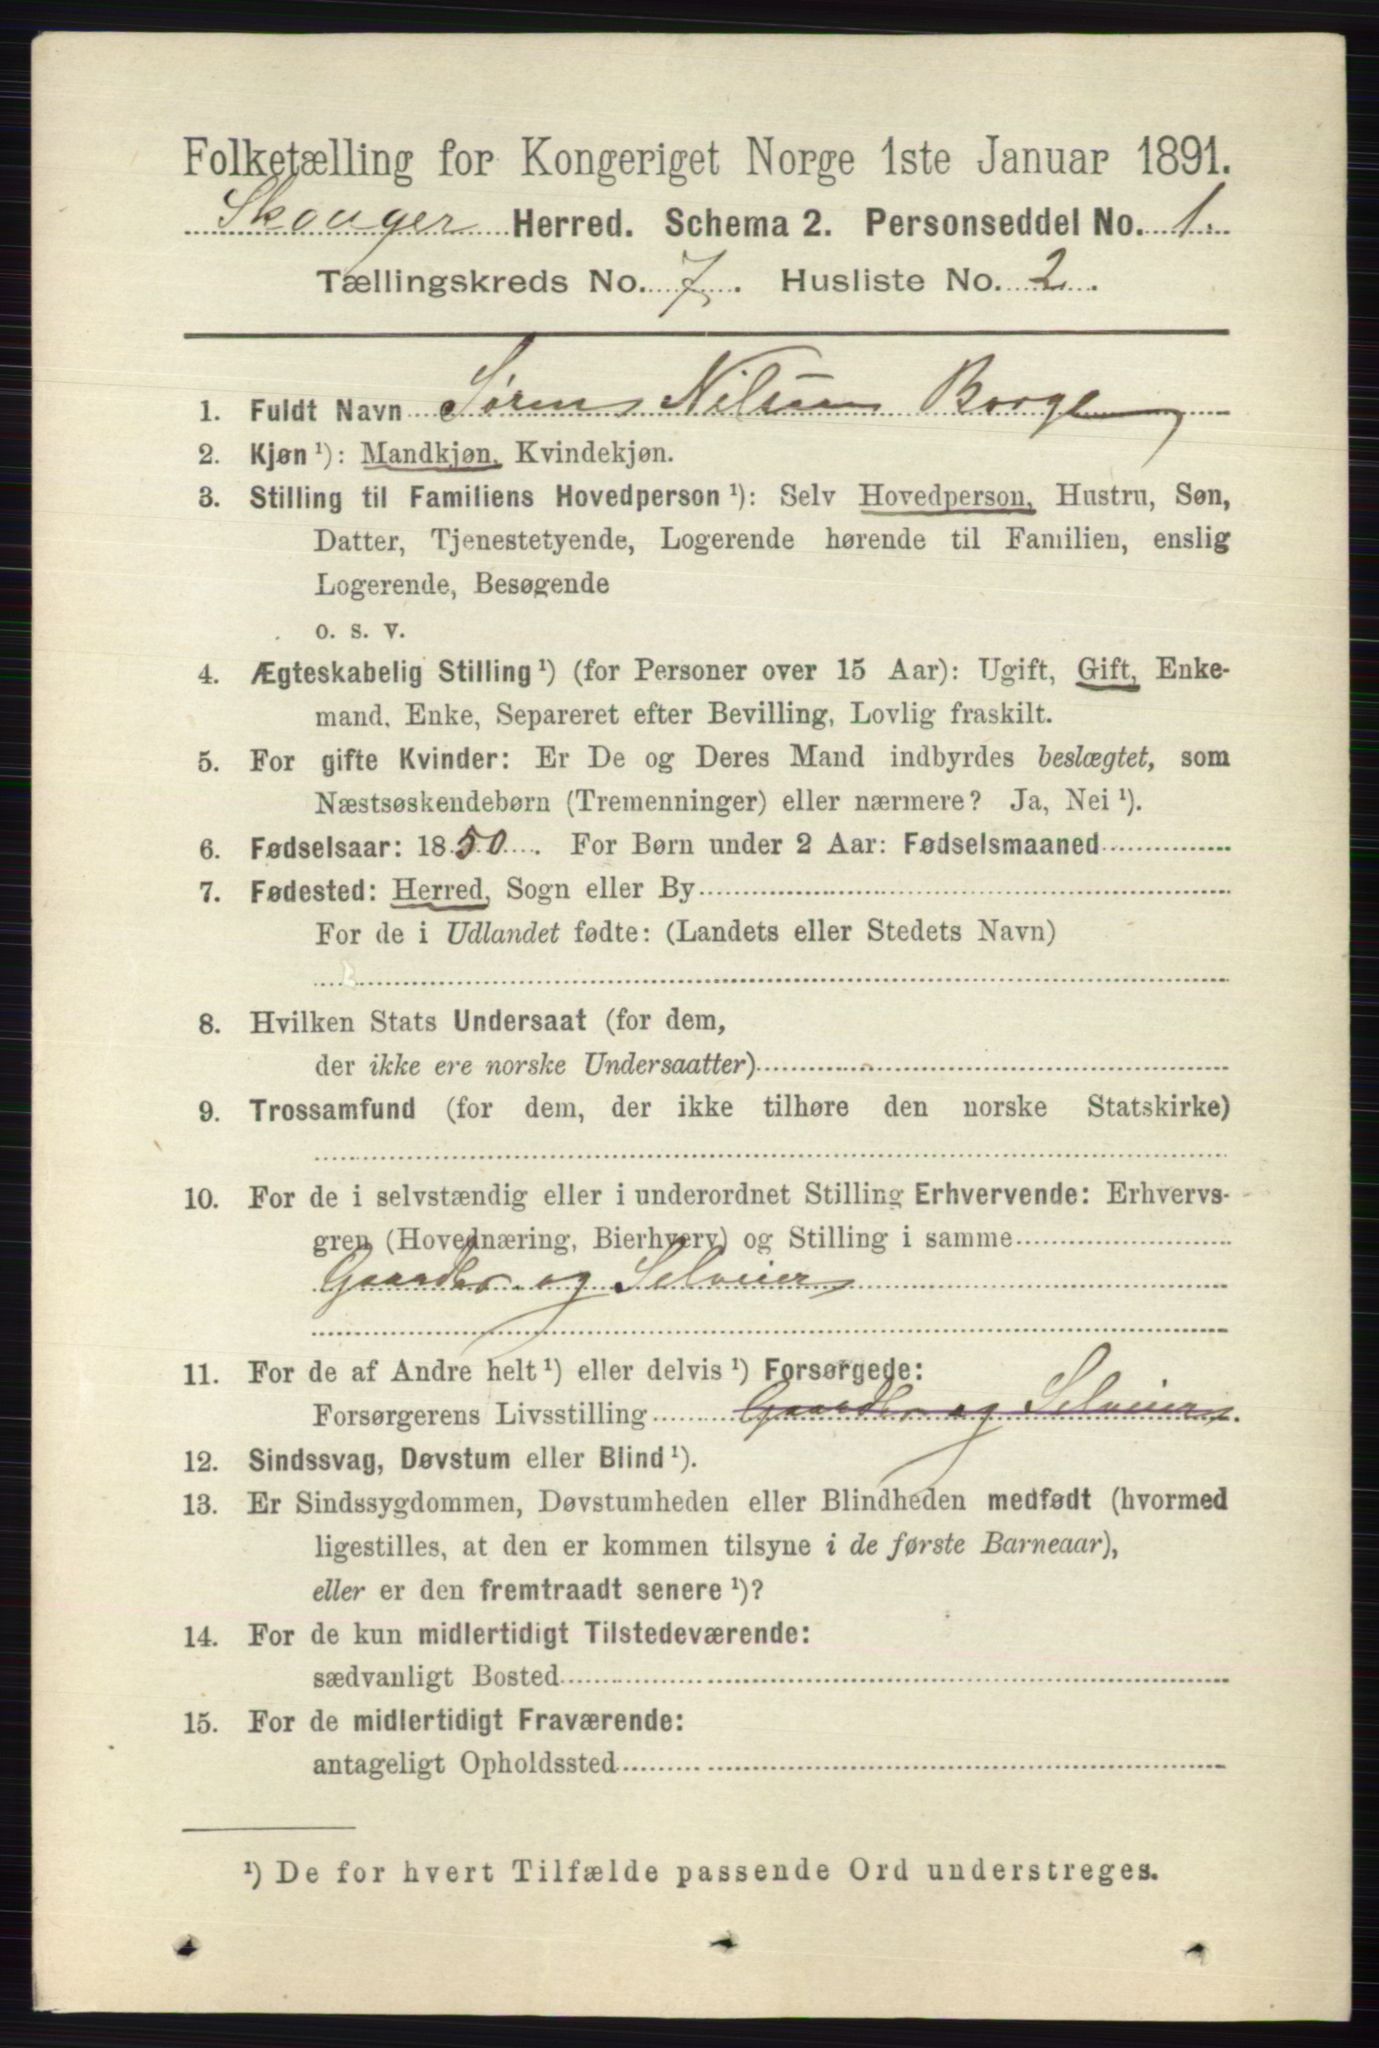 Folketælling for Kongeriget Norge 1ste Januar 1891.
Skouger Herred. Schema 2. Personseddel No. 1.
Tællingskreds No. 7. Husliste No. 2.
1. Fuldt Navn Søren Nilsen Borge
2. Kjøn ¹): Mandkjøn, Kvindekjøn.
3. Stilling til Familiens Hovedperson ¹): Selv Hovedperson, Hustru, Søn,
Datter, Tjenestetyende, Logerende hørende til Familien, enslig
Logerende, Besøgende
o. s. v.
4. Ægteskabelig Stilling ¹) (for Personer over 15 Aar): Ugift, Gift, Enke-
mand, Enke, Separeret efter Bevilling, Lovlig fraskilt.
5. For gifte Kvinder: Er De og Deres Mand indbyrdes beslægtet, som
Næstsøskendebørn (Tremenninger) eller nærmere? Ja, Nei ¹).
6. Fødselsaar: 1850. For Børn under 2 Aar: Fødselsmaaned
7. Fødested: Herred, Sogn eller By
For de i Udlandet fødte: (Landets eller Stedets Navn)
8. Hvilken Stats Undersaat (for dem,
der ikke ere norske Undersaatter)
9. Trossamfund (for dem, der ikke tilhøre den norske Statskirke)
10. For de i selvstændig eller i underordnet Stilling Erhvervende: Erhvervs-
gren (Hovednæring, Bierhverv) og Stilling i samme
Gaardbr. og Selveier
11. For de af Andre helt ¹) eller delvis ¹) Forsørgede:
Forsørgerens Livsstilling Gaardbr. og Selveier.
12. Sindssvag, Døvstum eller Blind ¹).
13. Er Sindssygdommen, Døvstumheden eller Blindheden medfødt (hvormed
ligestilles, at den er kommen tilsyne i de første Barneaar),
eller er den fremtraadt senere ¹)?
14. For de kun midlertidigt Tilstedeværende:
sædvanligt Bosted
15. For de midlertidigt Fraværende:
antageligt Opholdssted
¹) De for hvert Tilfælde passende Ord understreges.